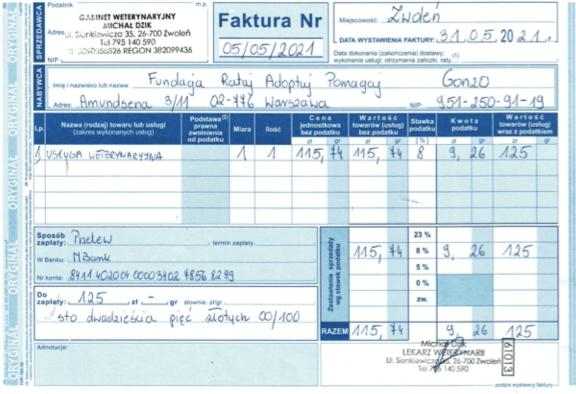 ORYGINAŁ ORYGINAŁ ORYGINAŁ ORYGINAŁ ORYGINAŁ
SPRZEDAWCA
Podatnik m.p.
GABINET WETERYNARYJNY
MICHAŁ DZIK
Adres: ul. Sienkiewicza 35, 26-700 Zwoleń
Tel 795 140 590
REGON 382099436
NIP
Faktura Nr
05/05/2021
Miejscowość: Zwoleń
DATA WYSTAWIENIA FAKTURY: 31.05.2021 r.
Data dokonania (zakończenia) dostawy; (1)
wykonania usługi; otrzymania zaliczki, raty
NABYWCA
Imię i nazwisko lub nazwa: Fundacja Ratuj Adoptuj Pomagaj Gonzo
Adres: Amundsena 3/11 02-776 Warszawa NIP: 951-250-91-19
Lp. Nazwa (rodzaj) towaru lub usługi (zakres wykonanych usług) Podstawa (2) prawna zwolnienia od podatku Miara Ilość Cena jednostkowa bez podatku Wartość towarów (usług) bez podatku Stawka podatku Kwota podatku Wartość towarów (usług) wraz z podatkiem
zł gr zł gr [%] zł gr zł gr
1 USŁUGA WETERYNARYJNA 1 1 115,74 115,74 8 9,26 125
Sposób zapłaty: Przelew termin zapłaty
W Banku: MBank
Nr konta:
Do zapłaty: 125 zł - gr słownie: zł/gr
sto dwadzieścia pięć złotych 00/100
Adnotacje:
Zestawienie sprzedaży wg stawek podatku
23 %
115,74 8 % 9,26 125
5 %
0 %
zw.
RAZEM 115,74 9,26 125
Michał Dzik
LEKARZ WETERYNARII
Ul. Sienkiewicza 35, 26-700 Zwoleń
Tel 795 140 590
61013
podpis wystawcy faktury